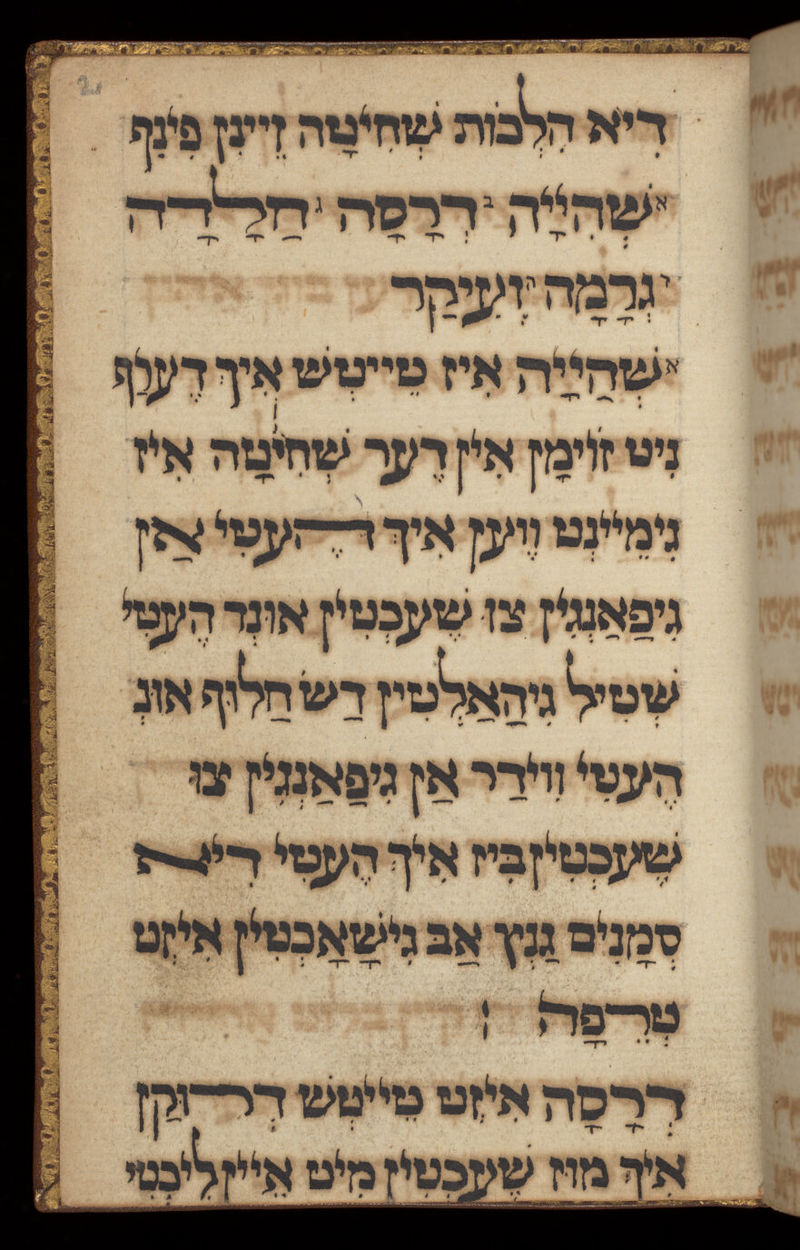 2
דִיא הִלְכוֹת שְׁחִיטָה זֵיינִן פִינְף
א שְׁהִיָיה ב דְרָסָה ג חַלָדָה
ד גְרָמָה ה וְעִיקַר
א שְׁהַיָיה אִיז טֵייטְשׁ אִיךְ דֶערַף
נִיט זוֹימָן אִין דֶער שְׁחִיטָה אִיז
גִימֵיינְט וֶוען אִיךְ הֶעטִי אַן
גִיפַאַנְגִין צוּ שֶׁעכְטִין אוּנְד הֶעטִי
שְׁטִיל גִיהַאַלְטִין דַשׂ חַלוּף אוּנְ
הֶעטִי וִוידַר אַן גִיפַאַנְגִין צוּ
שֶׁעכְטִין בִּיז אִיךְ הֶעטִי דִיא
סִמָנִים גַנְץ אַב גִישָׁאָכְטִין אִיזְט
טְרֵפָה :
דְרָסָה אִיזְט טֵייטְשׁ דְרוּקַן
אִיךְ מוּז שֶׁעכְטִין מִיט אֵיין לֵיכְטִי